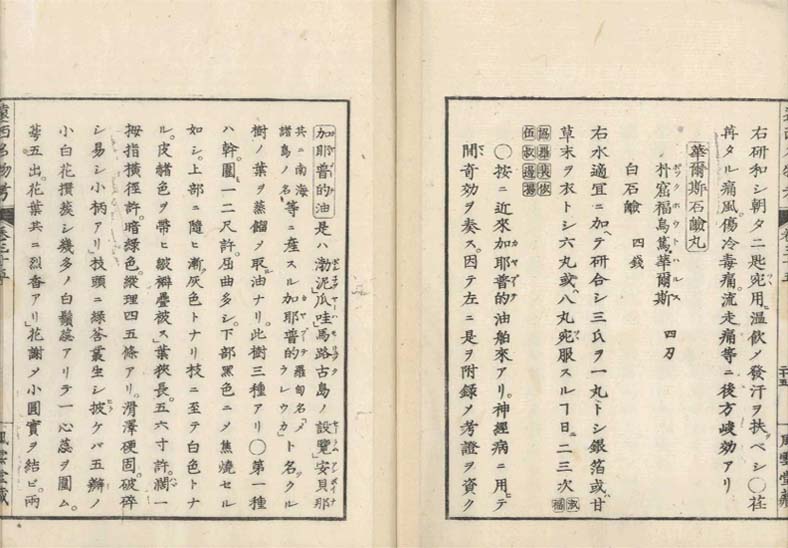 右研和シ朝タ二匙宛用温飲メ發汗ヲ扶ベシ〇荏
苒タル痛風。傷冷毒痛。流走痛等ニ後方峻効アリ
華爾斯石鹸丸
朴窟福烏篤華爾斯 四刄
ポックホウトハルス
白石鹸 四錢
右水適宜ニ加ヘテ研合シ三氏ヲ一丸トシ銀箔或甘
草末ヲ衣トシ六丸或八丸宛服スルヿ日二三次
〇按ニ近來加耶普的油舶來アリ。神經病ニ用ヒテ
カヤプテ
間奇効ヲ奏ス。因テ左ニ是ヲ附録メ考證ヲ資ク
加耶普的油 是ハ渤泥瓜哇馬路古島ノ設覽安貝那
共ニ南海諸島ノ名 等ニ産スル加耶普的 羅甸名 ラレウカ ト名クル
樹ノ葉ヲ蒸餾メ取油ナリ。此樹三種アリ〇第一種
ハ幹圍一二尺許。屈曲多シ。下部黑色ニメ焦燒セル
如シ。上部ニ隨ヒ漸灰色トナリ枝ニ至テ白色トナ
ル。皮赭色ヲ帶ヒ皴襞疊被ス」葉狹長。五六寸許。濶一
拇指橫徑許。暗綠色。縱理四五條アリ。滑澤硬固。破碎
シ易シ小柄アリ」枝頭ニ綠苔叢生シ披ケバ五瓣ノ
小白花攅蔟シ幾多ノ白鬚蕊アリテ一心蕊ヲ圍ム。
萼五出。花葉共ニ烈香アリ」花謝メ小圓實ヲ結ビ。兩
遠西名物考
風雲堂藏
風雲堂藏